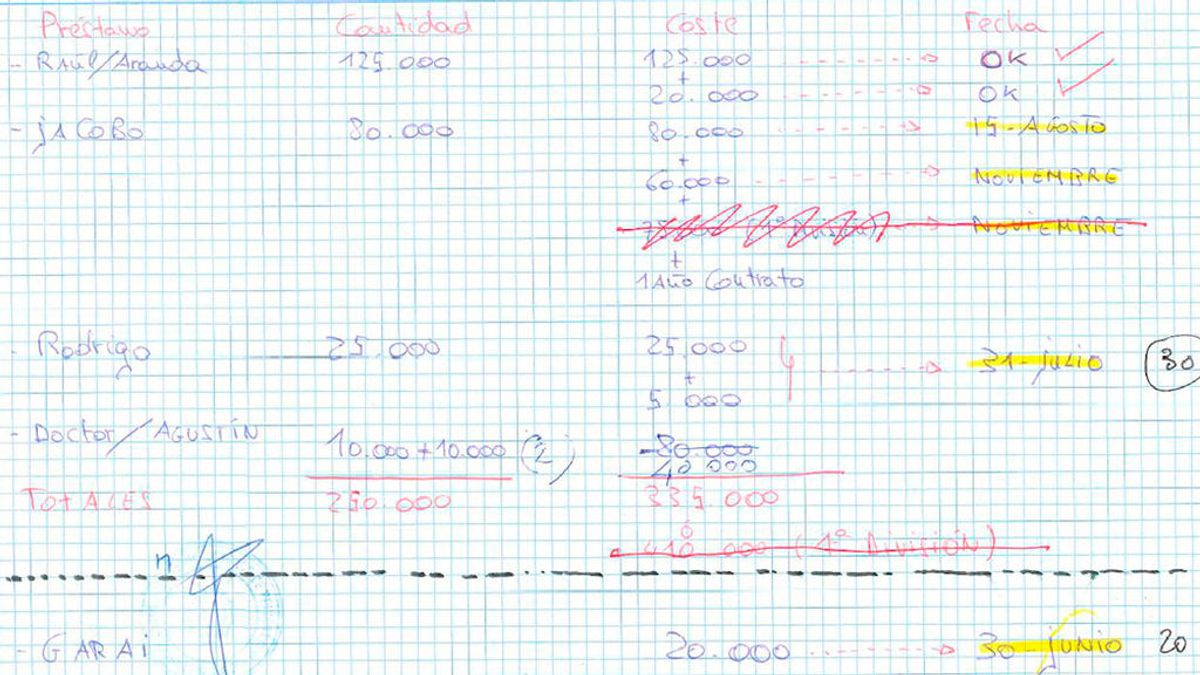 Préstamo Cantidad Coste Fecha
- RAÚL/Aranda 125.000 125.000 OK
+
20.000 OK
- jACOBO 80.000 80.000 15-AGOSTO
+
60.000 NOVIEMBRE
+
(1ª División) NOVIEMBRE
+
1 Año Contrato
- Rodrigo 25.000 25.000 31-julio 30
+
5.000
- Doctor/AGUSTÍN 10.000+10.000 (2) 80.000
40.000
TOTALES 250.000 335.000
ó
410.000 (1ª División)
- GARAi 20.000 30-junio 20